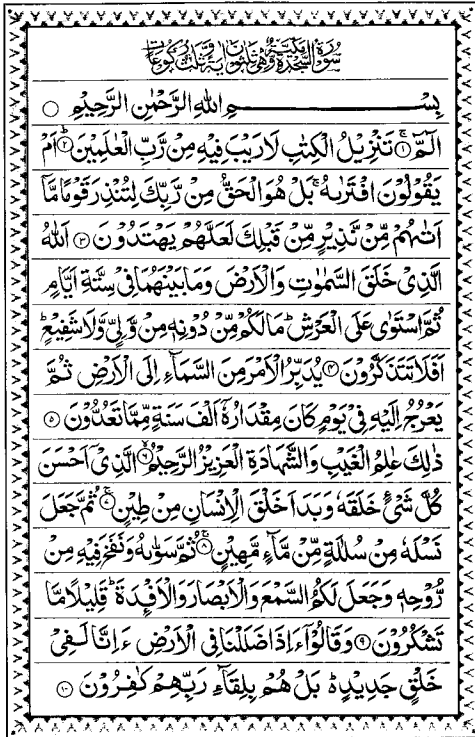 سُوْرَةُ السَّجْدَةِ مَكِّيَّةٌ وَّهِيَ ثَلٰثُوْنَ اٰيَةً وَّثَلٰثُ رُكُوْعَاتٍ
بِسْمِ اللهِ الرَّحْمٰنِ الرَّحِيْمِ ○
الٓمّٓ ۚ﴿۱﴾ تَنْزِيْلُ الْكِتٰبِ لَا رَيْبَ فِيْهِ مِنْ رَّبِّ الْعٰلَمِيْنَ ؕ﴿۲﴾ اَمْ
يَقُوْلُوْنَ افْتَرٰىهُ ۚ بَلْ هُوَ الْحَقُّ مِنْ رَّبِّكَ لِتُنْذِرَ قَوْمًا مَّاۤ
اَتٰىهُمْ مِّنْ نَّذِيْرٍ مِّنْ قَبْلِكَ لَعَلَّهُمْ يَهْتَدُوْنَ ﴿۳﴾ اَللهُ
الَّذِيْ خَلَقَ السَّمٰوٰتِ وَالْاَرْضَ وَمَا بَيْنَهُمَا فِيْ سِتَّةِ اَيَّامٍ
ثُمَّ اسْتَوٰى عَلَى الْعَرْشِ ؕ مَا لَكُمْ مِّنْ دُوْنِهٖ مِنْ وَّلِيٍّ وَّلَا شَفِيْعٍ ؕ
اَفَلَا تَتَذَكَّرُوْنَ ﴿۴﴾ يُدَبِّرُ الْاَمْرَ مِنَ السَّمَآءِ اِلَى الْاَرْضِ ثُمَّ
يَعْرُجُ اِلَيْهِ فِيْ يَوْمٍ كَانَ مِقْدَارُهٗۤ اَلْفَ سَنَةٍ مِّمَّا تَعُدُّوْنَ ﴿۵﴾
ذٰلِكَ عٰلِمُ الْغَيْبِ وَالشَّهَادَةِ الْعَزِيْزُ الرَّحِيْمُ ۙ﴿۶﴾ الَّذِيْۤ اَحْسَنَ
كُلَّ شَيْءٍ خَلَقَهٗ وَبَدَاَ خَلْقَ الْاِنْسَانِ مِنْ طِيْنٍ ۚ﴿۷﴾ ثُمَّ جَعَلَ
نَسْلَهٗ مِنْ سُلٰلَةٍ مِّنْ مَّآءٍ مَّهِيْنٍ ۚ﴿۸﴾ ثُمَّ سَوّٰىهُ وَنَفَخَ فِيْهِ مِنْ
رُّوْحِهٖ وَجَعَلَ لَكُمُ السَّمْعَ وَالْاَبْصَارَ وَالْاَفْـِٕدَةَ ؕ قَلِيْلًا مَّا
تَشْكُرُوْنَ ﴿۹﴾ وَقَالُوْۤا ءَاِذَا ضَلَلْنَا فِي الْاَرْضِ ءَاِنَّا لَفِيْ
خَلْقٍ جَدِيْدٍ ؕ۬ بَلْ هُمْ بِلِقَآئِ رَبِّهِمْ كٰفِرُوْنَ ﴿۱۰﴾